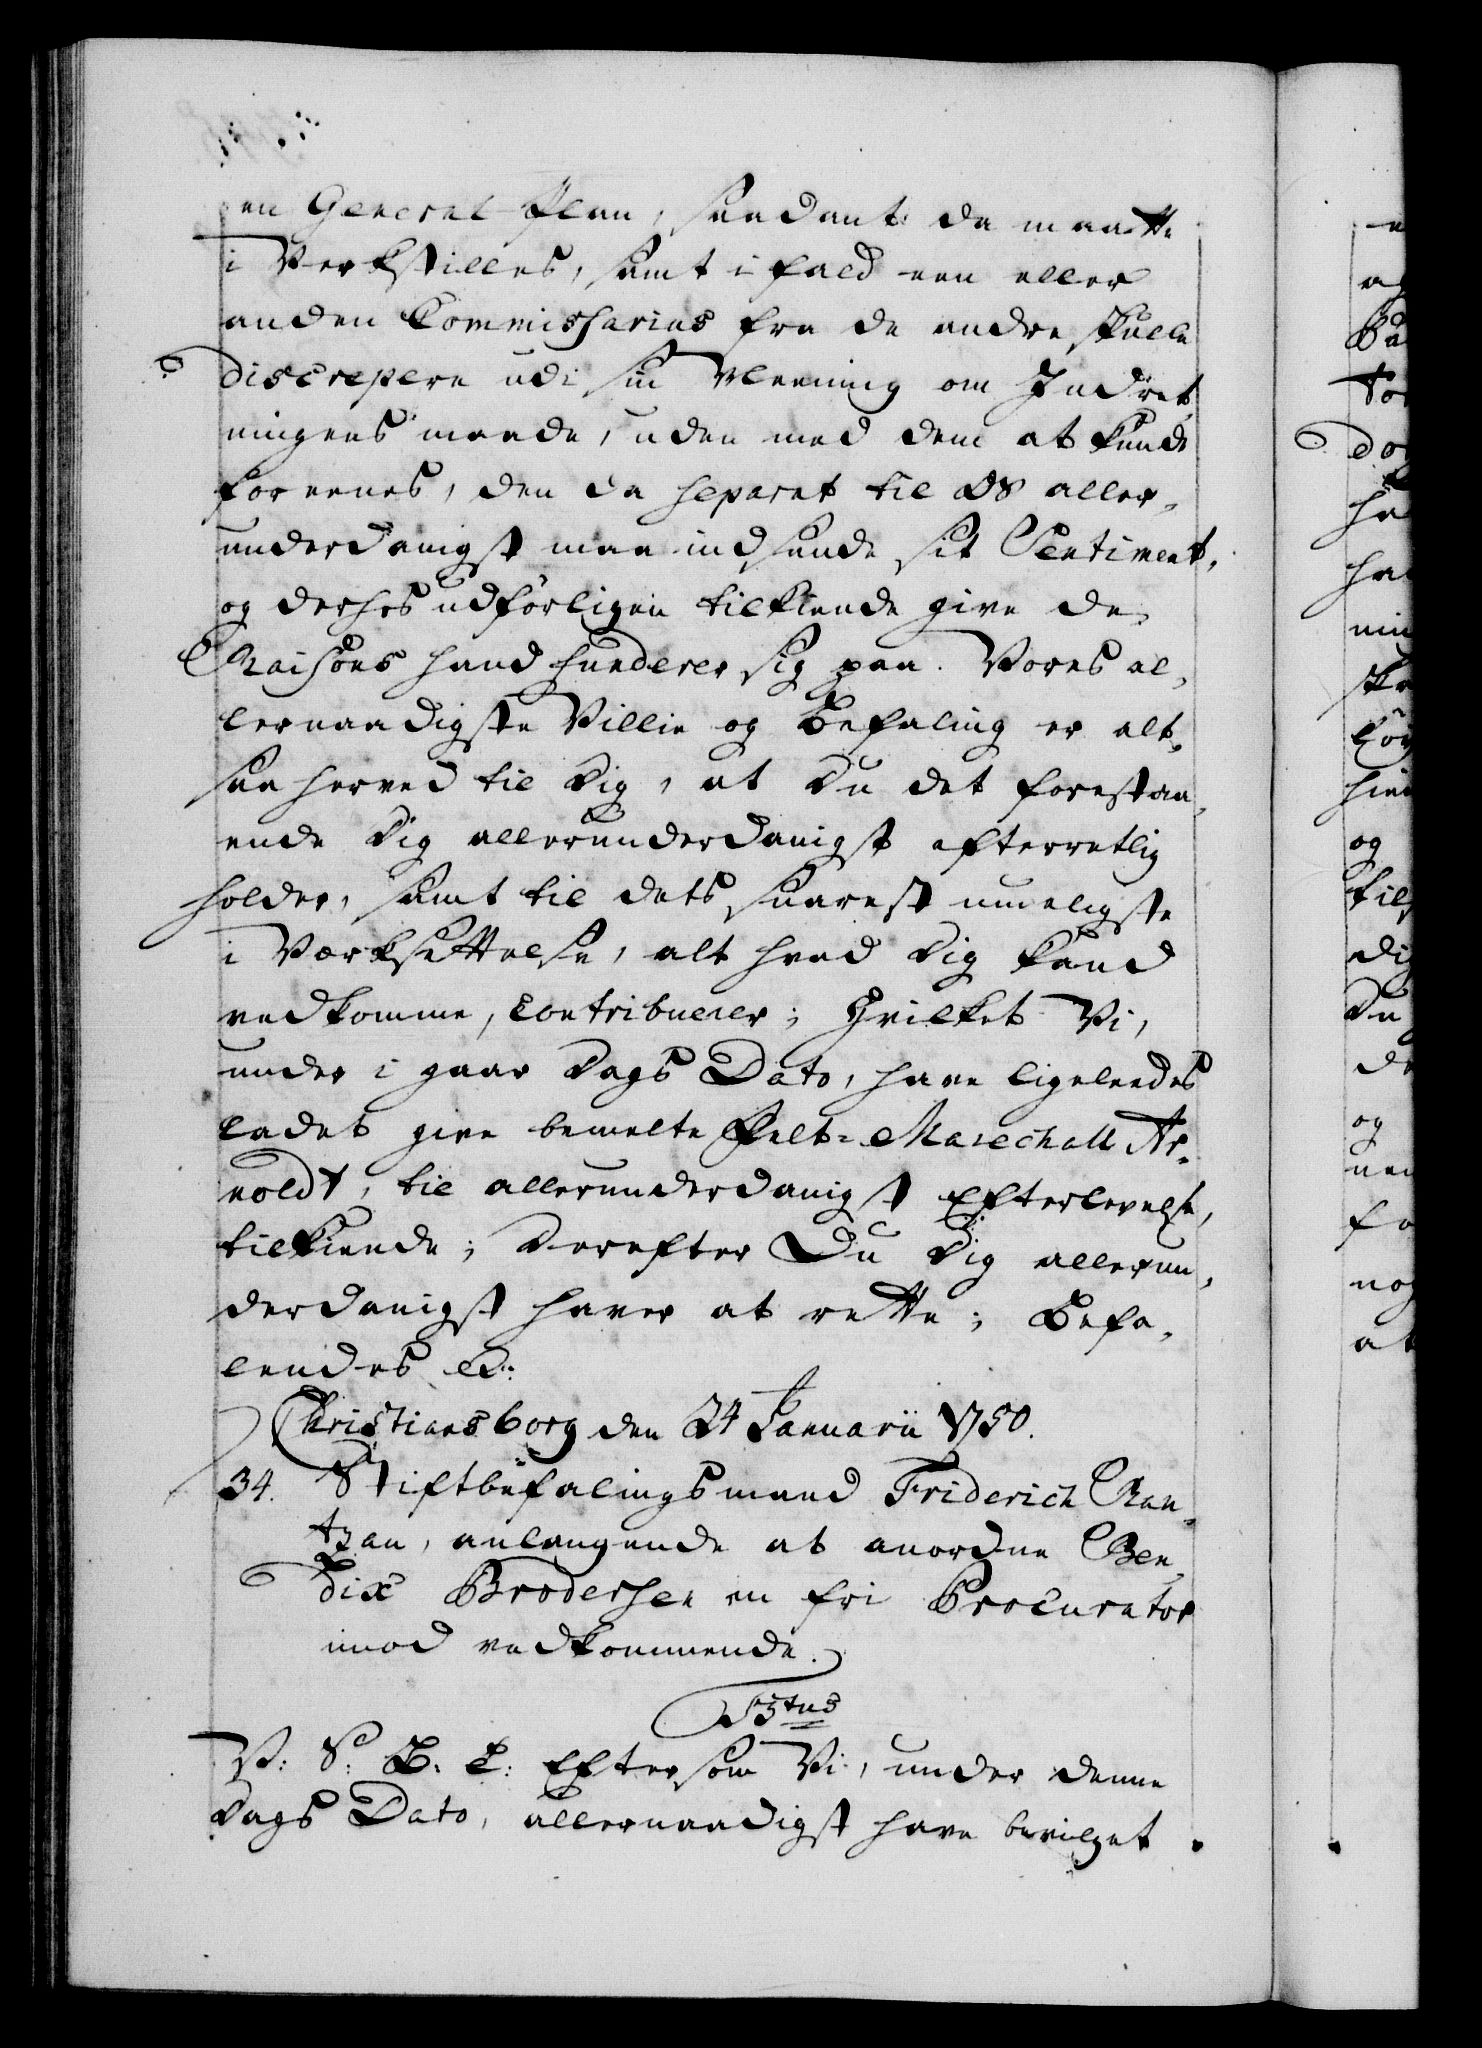 en General-Plan, saadant da maatte
i Verkstilles, samt ifald een eller
anden Commissarius fra de andre skulle
discrepere udi sin Meening om Indret,
ningens maade, uden med dem at kunde
foreenes, den da separat til Os aller,
underdanigst maa indsende sit Sentiment,
og derhos udførligen tilkiende give de
Raisons hand funderer sig paa. Vores al,
lernaadigste Villie og Befaling er alt,
saa herved til Dig, at Du det forestaa,
ende Dig allerunderdanigst efterretlig
holder, samt til dets snarest mueligste
i Værksættelse, alt hvad Dig kand
vedkomme, contribuerer; Hvilket Vi,
under i gaar Dags Dato, have ligeleedes
ladet give bemelte Felt-Marechall Ar,
noldt, til allerunderdanigst Efterlevelse,
tilkiende; Derefter Du Dig allerun,
derdanigst haver at rette; Befa,
lendes &c:
Christiansborg den 24 Januarii 1750.
34. Stiftbefalingsmand Friderich Ran,
tzau, anlangende at anordne Ben,
dix Brodersen en fri Procurator
imod vedkommende.
F5tus
V: S: B: E: Eftersom Vi, under denne
Dags Dato, allernaadigst have bevilget